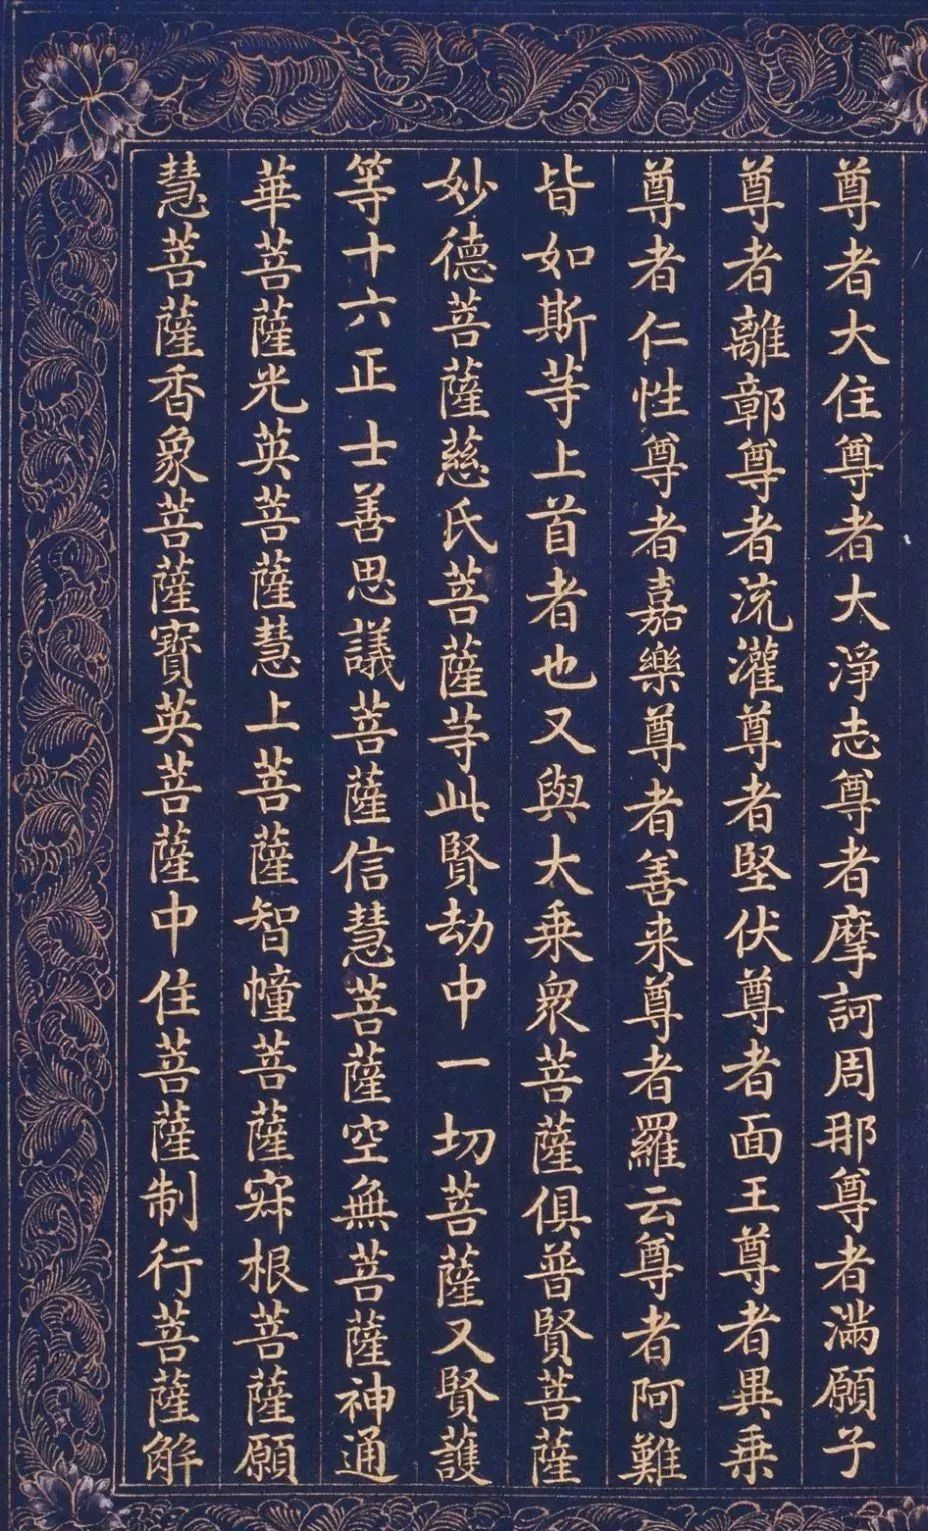 尊者大住尊者大淨志尊者摩訶周那尊者滿願子
尊者離鄣尊者流灌尊者堅伏尊者面王尊者異乘
尊者仁性尊者嘉樂尊者善来尊者羅云尊者阿難
皆如斯等上首者也又與大乘衆菩薩俱普賢菩薩
妙德菩薩慈氏菩薩等此賢劫中一切菩薩又賢護
等十六正士善思議菩薩信慧菩薩空無菩薩神通
華菩薩光英菩薩慧上菩薩智幢菩薩寂根菩薩願
慧菩薩香象菩薩寶英菩薩中住菩薩制行菩薩解